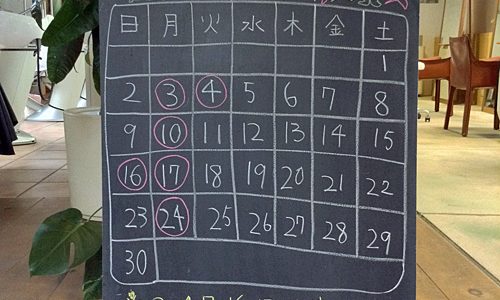 日 月 火 水 木 金 土
1
2 3 4 5 6 7 8
9 10 11 12 13 14 15
16 17 18 19 20 21 22
23 24 25 26 27 28 29
30